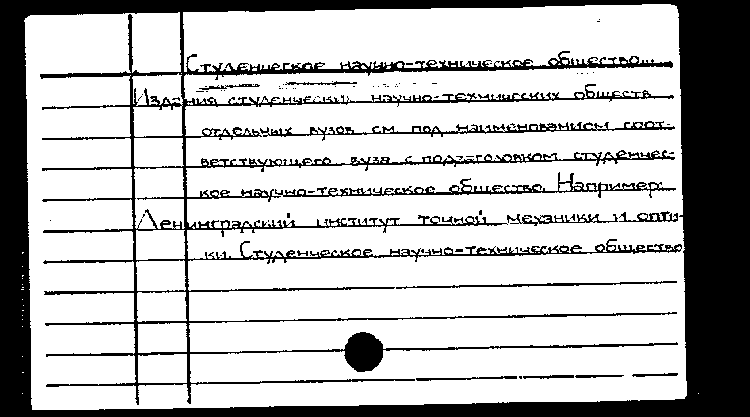 Студенческое научно-техническое общество...
Издания студенческих научно-технических обществ
отдельных вузов см. под наименованием соот-
ветствующего вуза с подзаголовком студенчес-
кое научно-техническое общество. Например:
Ленинградский институт точной механики и опти-
ки. Студенческое научно-техническое общество